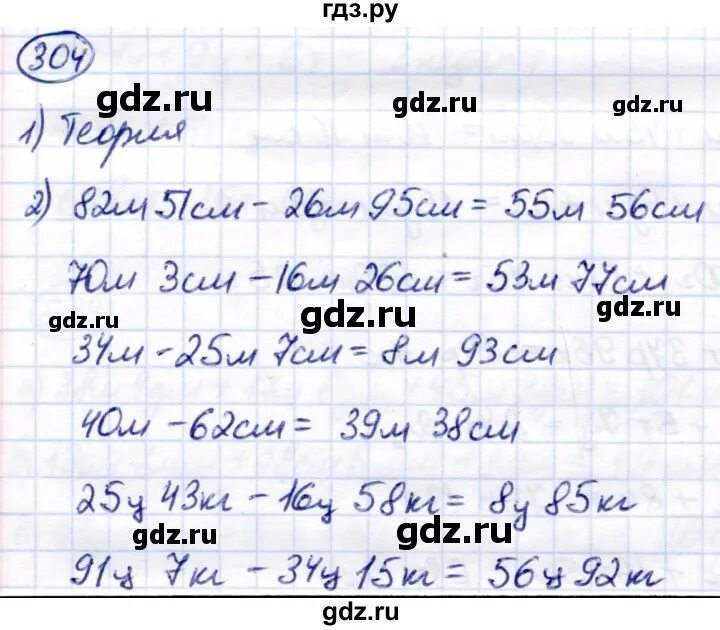 гдз.ру
304
gdz.ru
gdz.ru
gdz.ru
1) Теория
2) 82м 51см - 26м 95см = 55м 56см
70м 3см - 16м 26см = 53м 77см
gdz.ru
gdz.ru
34м - 25м 7см = 8м 93см
40м - 62см = 39м 38см
25ц 43кг - 16ц 58кг = 8ц 85кг
gdz.ru
gdz.ru
91ц 7кг - 34ц 15кг = 56ц 92кг
gdz.ru